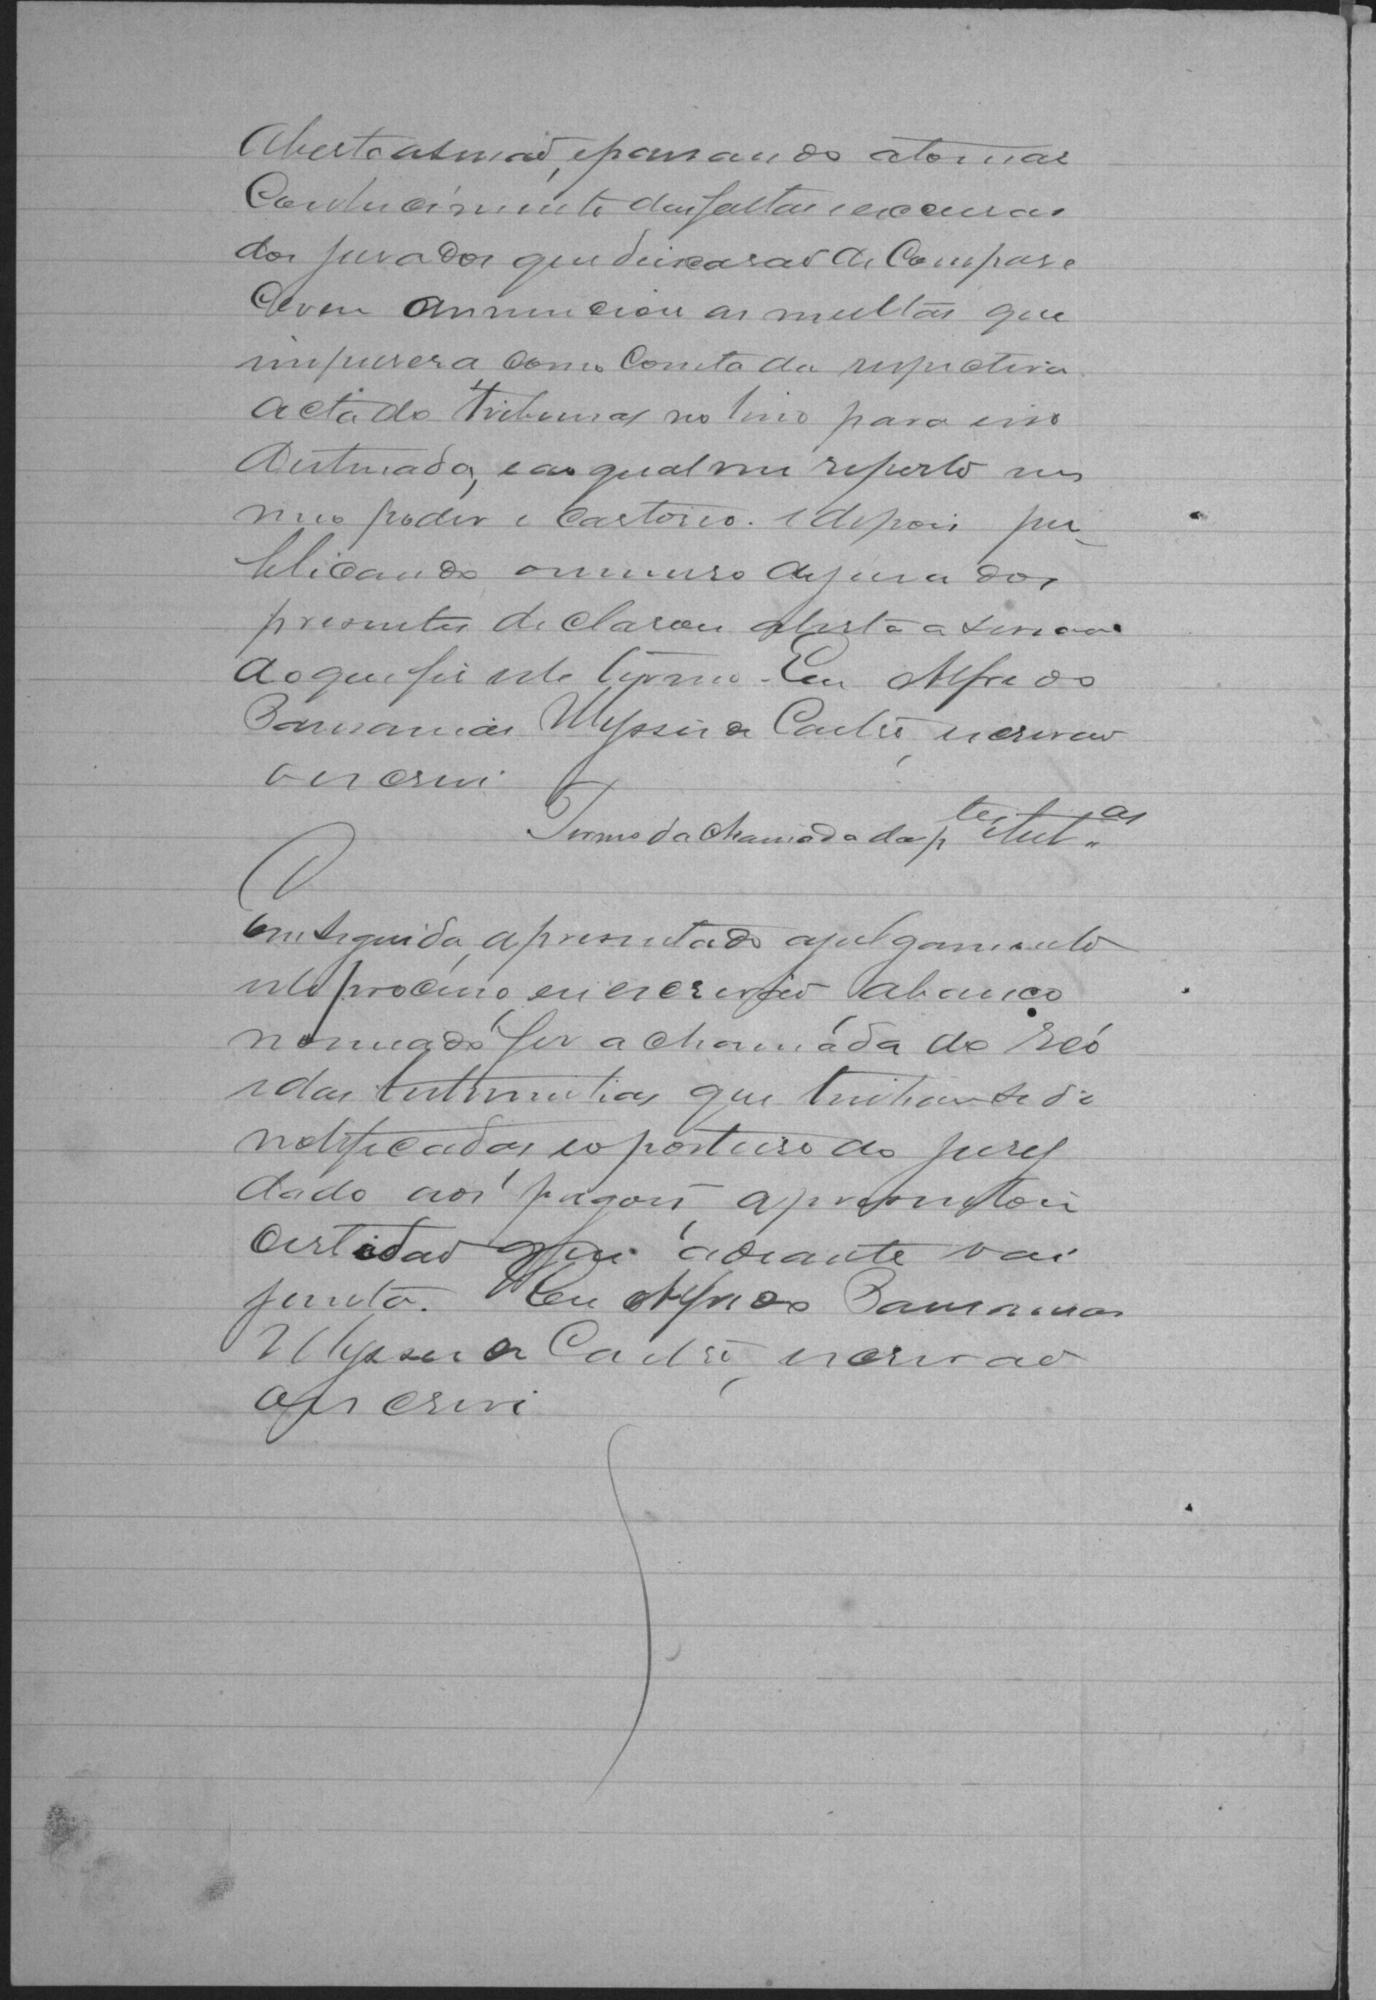 Aberta a sessaõ, e passando a tomar
Conhecimento das faltas e escusas
dos jurados que deixaraõ de Compare
cerem annunciou as multas que
impusera como Consta da respectiva
acta do Tribunal no livro para isso
destinado, e ao qual me reporto em
meo poder e cartorio. e depois pu-
blicando o numero de jurados
presentes declarou aberta a sessaõ
do que fiz este termo. Eu Alfredo
Ulysses de Castro, escrivaõ
o escrevi
Termo da chamada das p.tes e test.as
Em seguida, apresentado a julgamento
este processo, eu escrivaõ abaixo
nomeado fiz a chamada do réo
e das testemunhas que tinhaõ sido
notificadas e o porteiro do jury
dado aos pregoẽs apresentou
certidaõ que adiante vai
junta. Eu Alfredo
Ulysses de Castro, escrivaõ
o escrevi